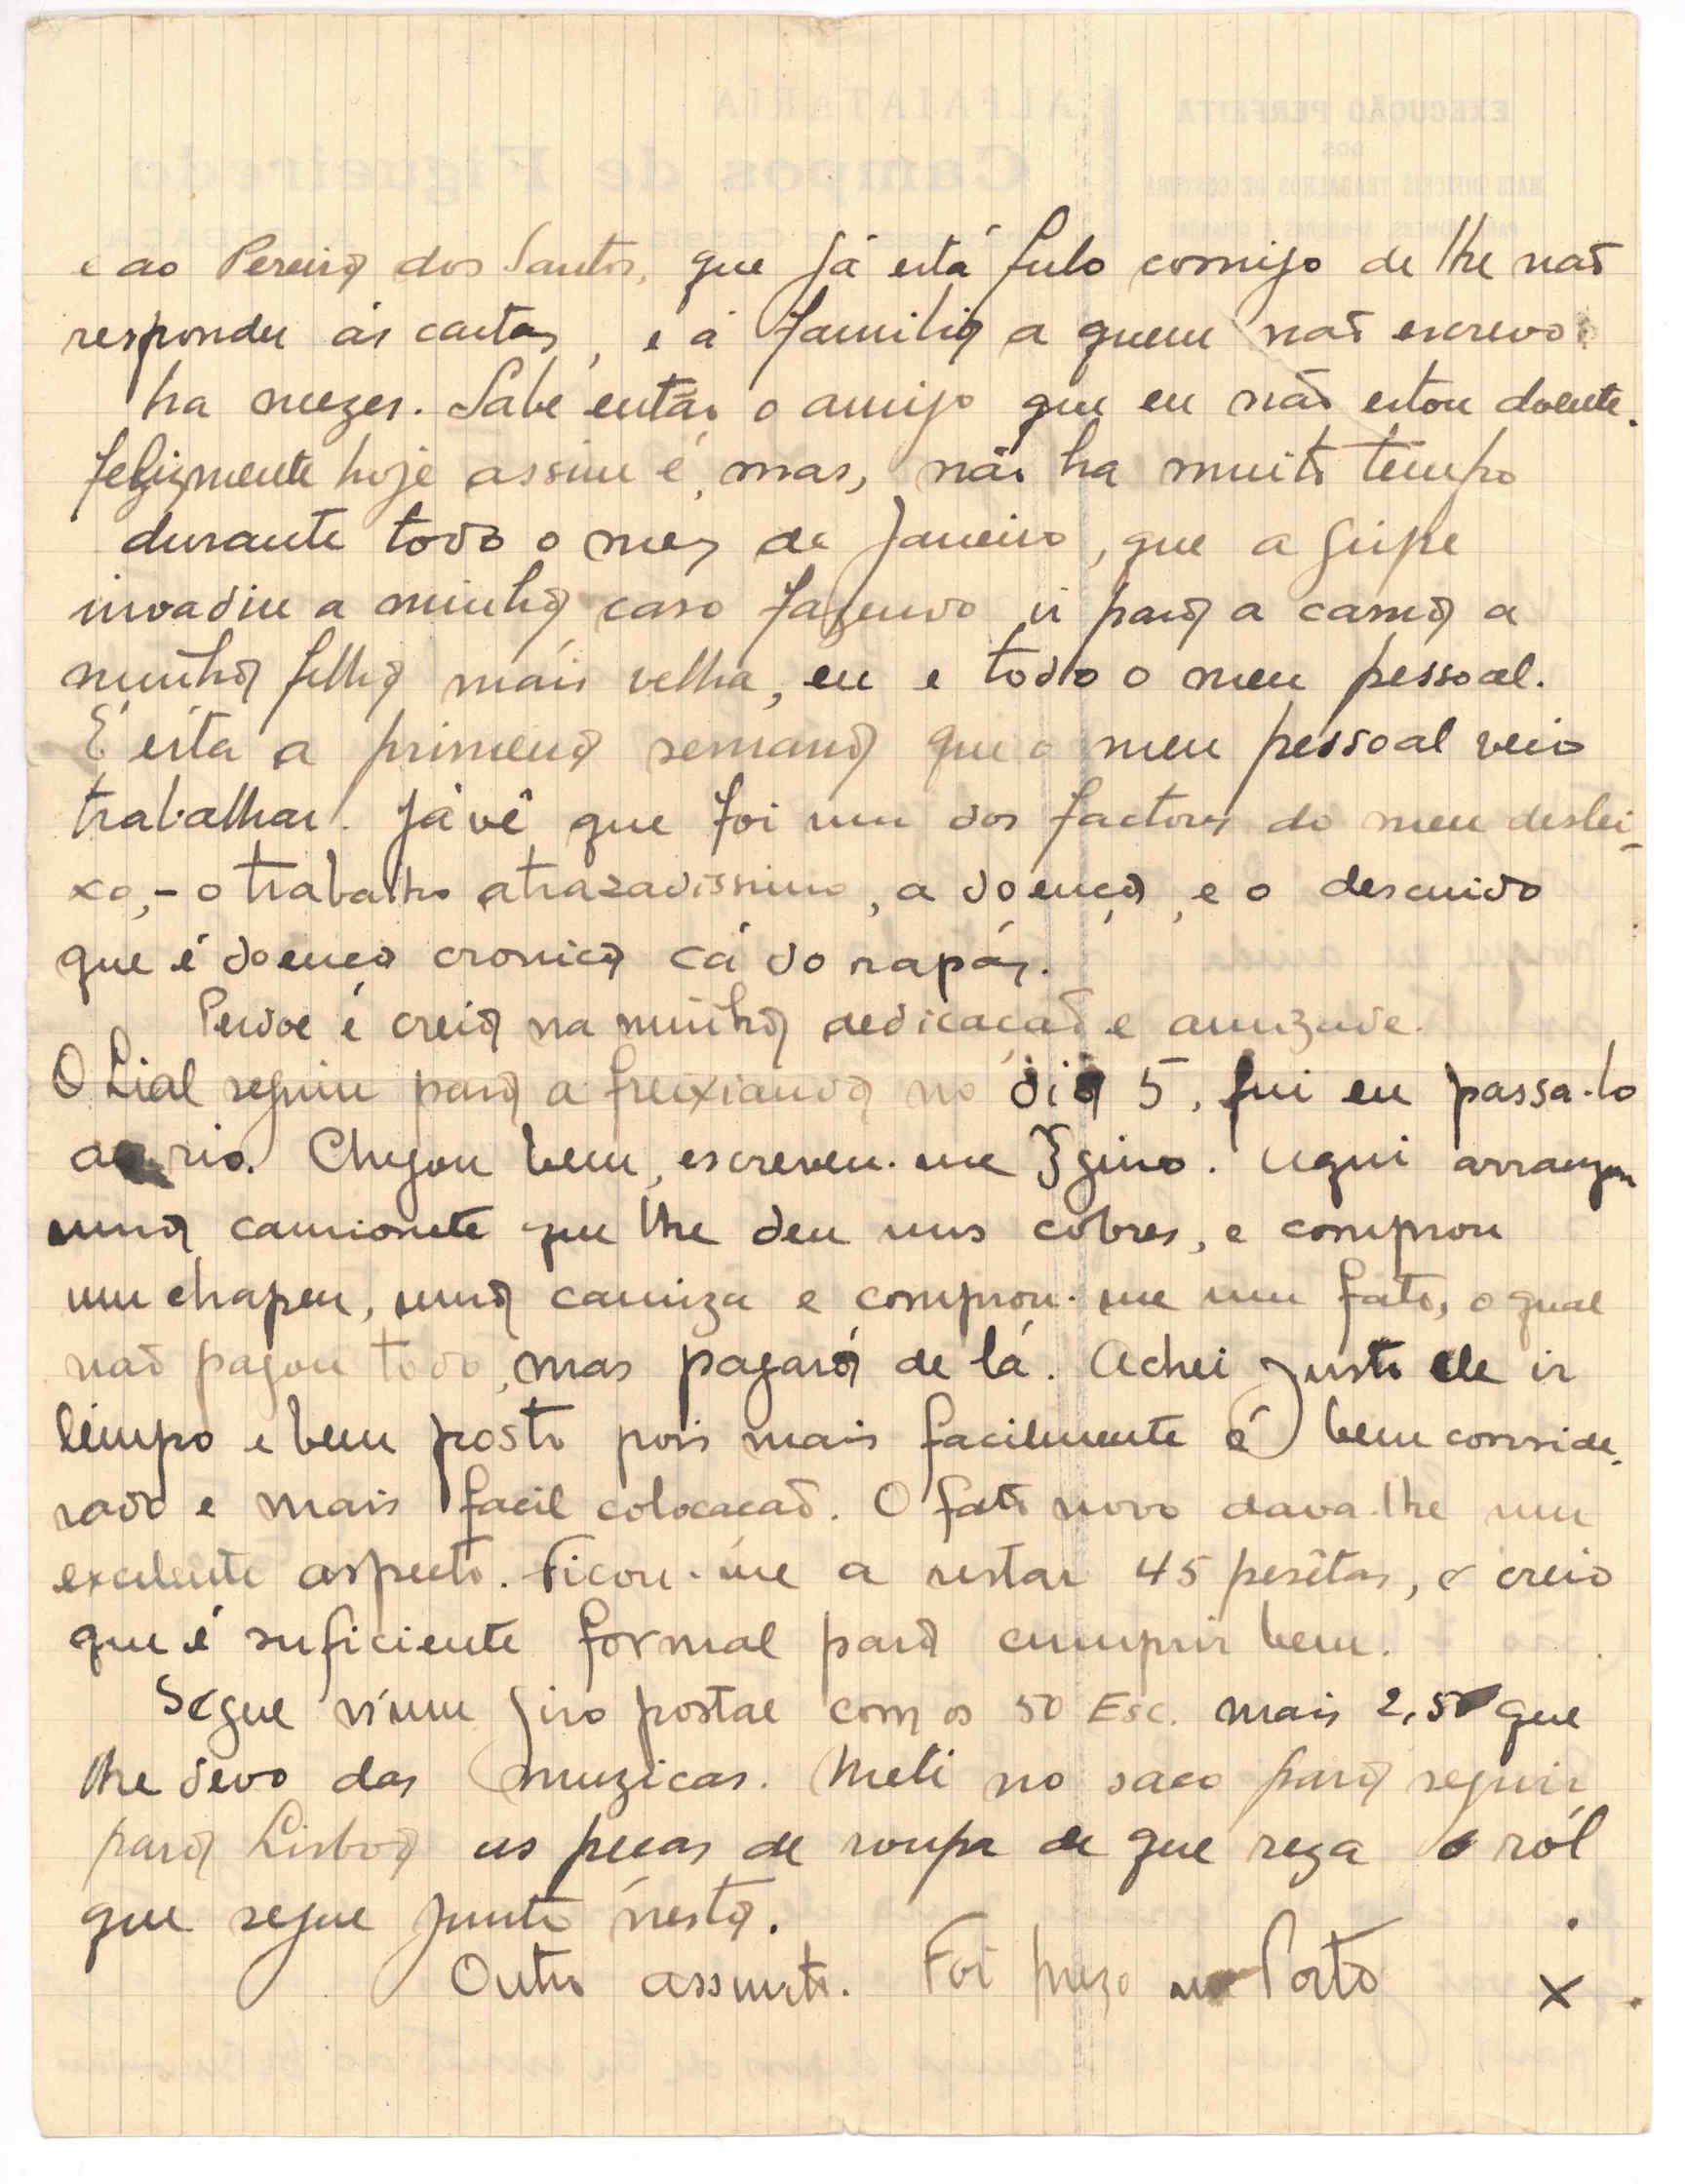 e ao Pereira dos Santos, que já está fulo comigo de lhe não
responder ás cartas, e á familia a quem não escrevo
ha mezes. Sabe então o amigo que eu não estou doente.
felizmente hoje assim é, mas, não ha muito tempo
durante todo o mez de Janeiro, que a gripe
invadiu a minha casa fazendo ir para a cama a
minha filha mais velha, eu e todo o meu pessoal.
É esta a primeira semana que o meu pessoal veio
trabalhar. Já vê que foi um dos factores do meu deslei-
xo, - o trabalho atrazadissimo, a doença, e o descuido
que é doença cronica cá do rapáz.
Perdoe e creia na minha dedicação e amizade.
O Lial seguiu para a freixianda no dia 5, fui eu passa-lo
ao rio. Chegou bem, escreveu-me Igino. Aqui arranjou
uma camionete que lhe deu uns cobres, e comprou
um chapeu, uma camiza e comprou-me um fato, o qual
não pagou todo, mas pagará de lá. Achei justo ele ir
limpo e bem posto pois mais facilmente é bem conside-
rado e mais facil colocação. O fato novo dava-lhe um
excelente aspecto. Ficou-me a restar 45 pesêtas, e creio
que é suficiente formal para cumprir bem.
Segue n'um giro postal com os 50 Esc. mais 2,50 que
lhe devo das muzicas. Meti no saco para seguir
para Lisboa as peças de roupa de que reza o ról
que segue junto n'esta.
Outro assunto. Foi prezo no Porto X